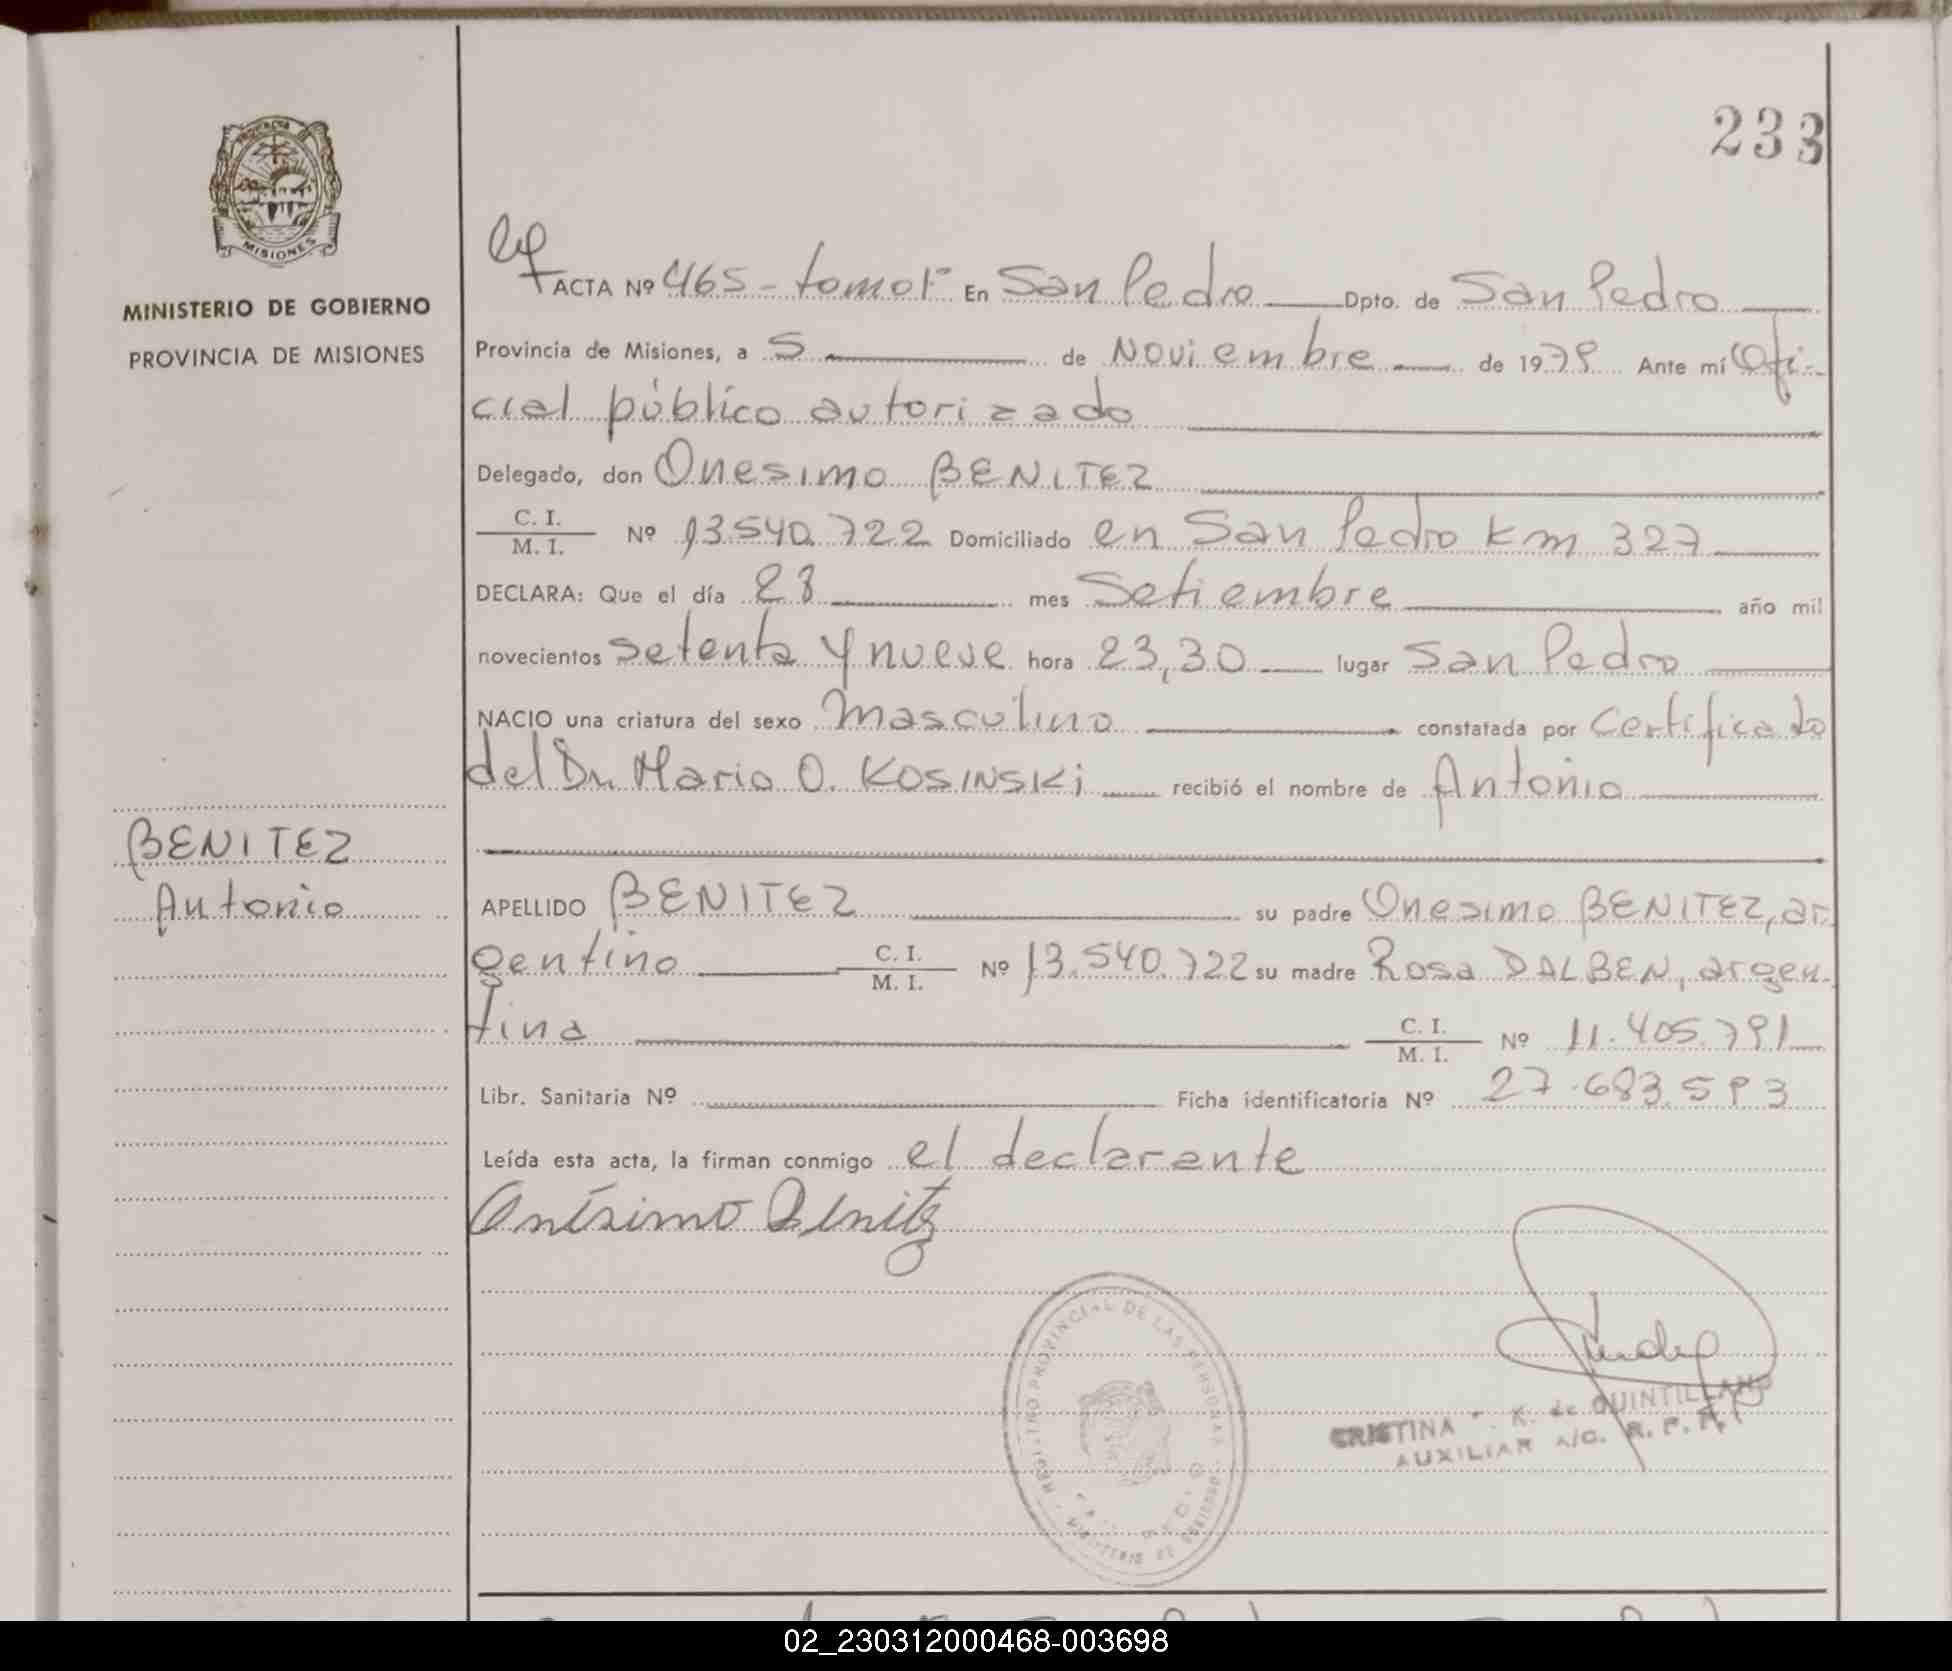 233
MINISTERIO DE GOBIERNO
PROVINCIA DE MISIONES
PROVINCIA
MISIONES
ACTA Nº 465 - tomo 1º En San Pedro Dpto. de San Pedro
Provincia de Misiones, a 5 de Noviembre de 1979 Ante mí Ofi-
cial público autorizado
Delegado, don Onesimo BENITEZ
C. I.
M. I. Nº 13.540.722 Domiciliado en San Pedro Km 327
DECLARA: Que el día 28 mes Setiembre año mil
novecientos setenta y nueve hora 23,30 lugar San Pedro
NACIO una criatura del sexo masculino constatada por Certificado
del Dr. Mario O. KOSINSKi recibió el nombre de Antonio
BENITEZ
Antonio
APELLIDO BENITEZ su padre Onesimo BENITEZ, ar-
gentino C. I.
M. I. Nº 13.540.722 su madre Rosa DALBEN, argen-
tina C. I.
M. I. Nº 11.405.791
Libr. Sanitaria Nº Ficha identificatoria Nº 27.683.593
Leída esta acta, la firman conmigo el declarante
Onésimo Benitz
REGISTRO PROVINCIAL DE LAS PERSONAS
MINISTERIO DE GOBIERNO
CRISTINA K. de QUINTILLANO
AUXILIAR A/C. R. P. P.
02_230312000468-003698